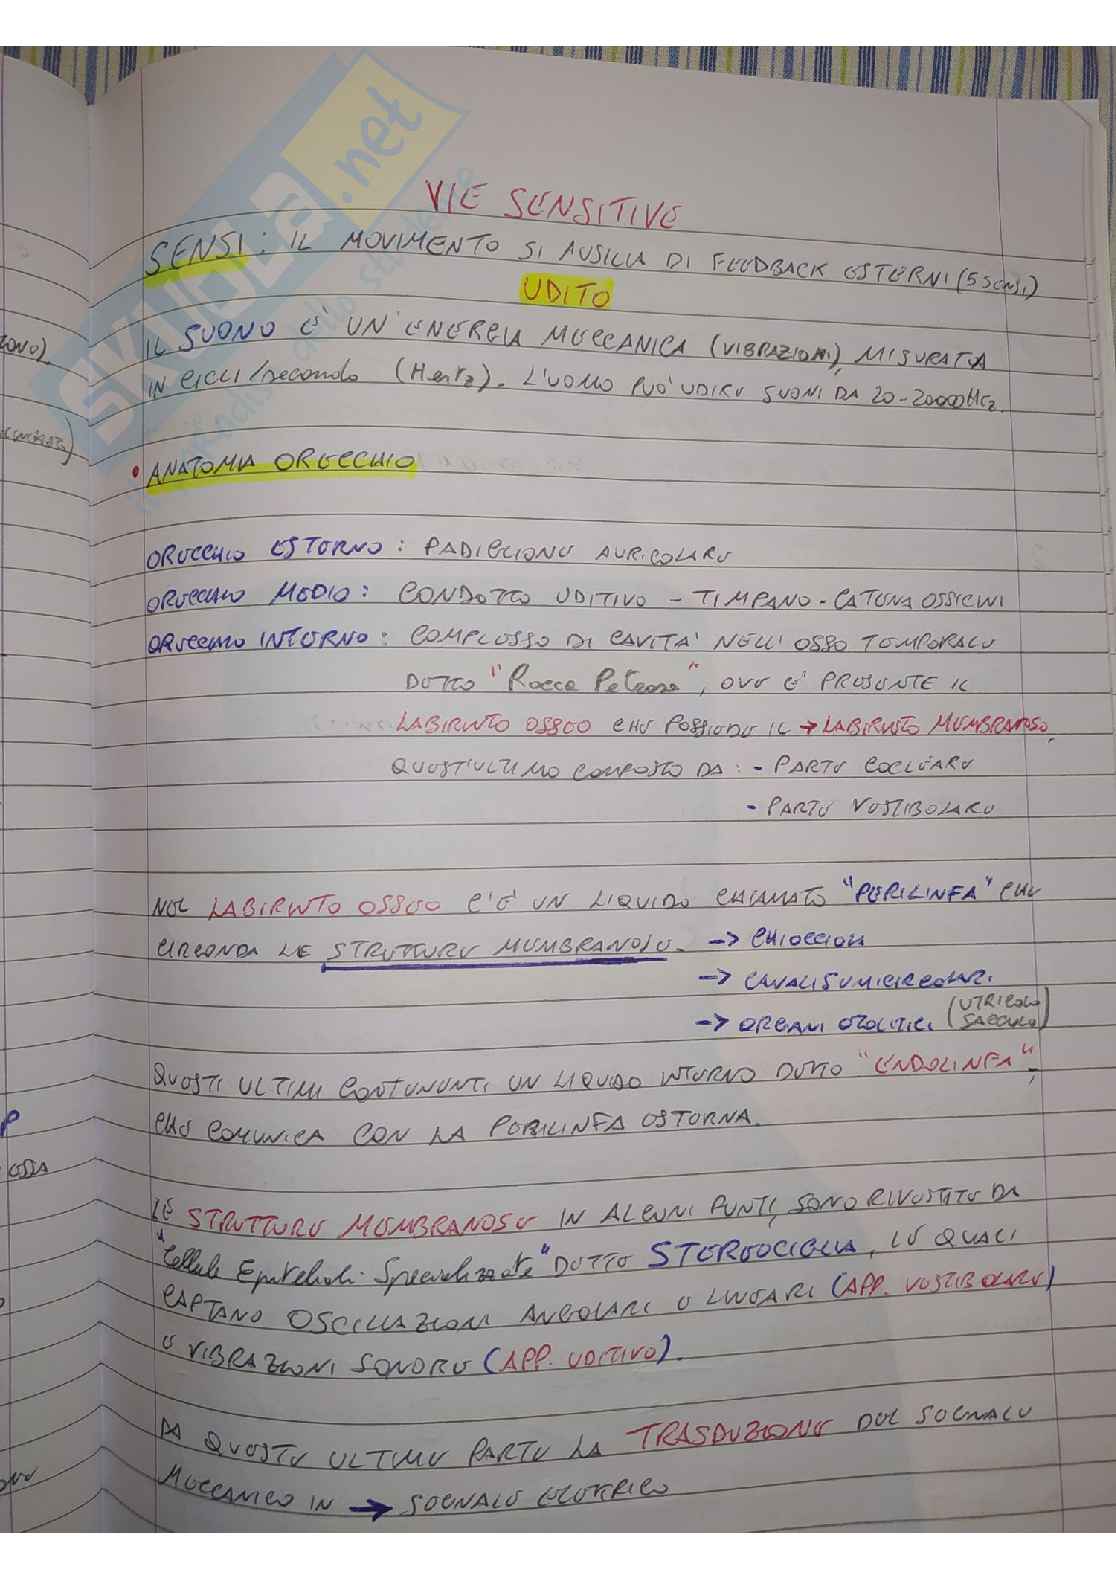 SKUOLA.net
VIE SENSITIVE
SENSI: IL MOVIMENTO SI AUSILIA DI FEEDBACK ESTERNI (5 SENSI)
UDITO
IL SUONO E' UN'ENERGIA MECCANICA (VIBRAZIONI), MISURATA
IN CICLI/secondo (Hertz). L'UOMO PUO' UDIRE SUONI DA 20-20000Hz.
• ANATOMIA ORECCHIO
ORECCHIO ESTERNO: PADIGLIONE AURICOLARE
ORECCHIO MEDIO: CONDOTTO UDITIVO - TIMPANO - CATENA OSSICINI
ORECCHIO INTERNO: COMPLESSO DI CAVITA' NELL'OSSO TEMPORALE
DETTO "Rocca Petrosa", OVE E' PRESENTE IL
LABIRINTO OSSEO CHE POSSIEDE IL → LABIRINTO MEMBRANOSO,
QUEST'ULTIMO COMPOSTO DA: - PARTE COCLEARE
- PARTE VESTIBOLARE
NEL LABIRINTO OSSEO C'E' UN LIQUIDO CHIAMATO "PERILINFA" CHE
CIRCONDA LE STRUTTURE MEMBRANOSE. → CHIOCCIOLA
→ CANALI SEMICIRCOLARI
→ ORGANI OTOLITICI (UTRICOLO SACCULO)
QUESTI ULTIMI CONTENENTI UN LIQUIDO INTERNO DETTO "ENDOLINFA",
CHE COMUNICA CON LA PERILINFA ESTERNA.
LE STRUTTURE MEMBRANOSE IN ALCUNI PUNTI, SONO RIVESTITE DA
"Cellule Epiteliali Specializzate" DETTE STEREOCIGLIA, LE QUALI
CAPTANO OSCILLAZIONI ANGOLARI O LINEARI (APP. VESTIBOLARE)
O VIBRAZIONI SONORE (APP. UDITIVO).
DA QUESTE ULTIME PARTE LA TRASDUZIONE DEL SEGNALE
MECCANICO IN → SEGNALE ELETTRICO